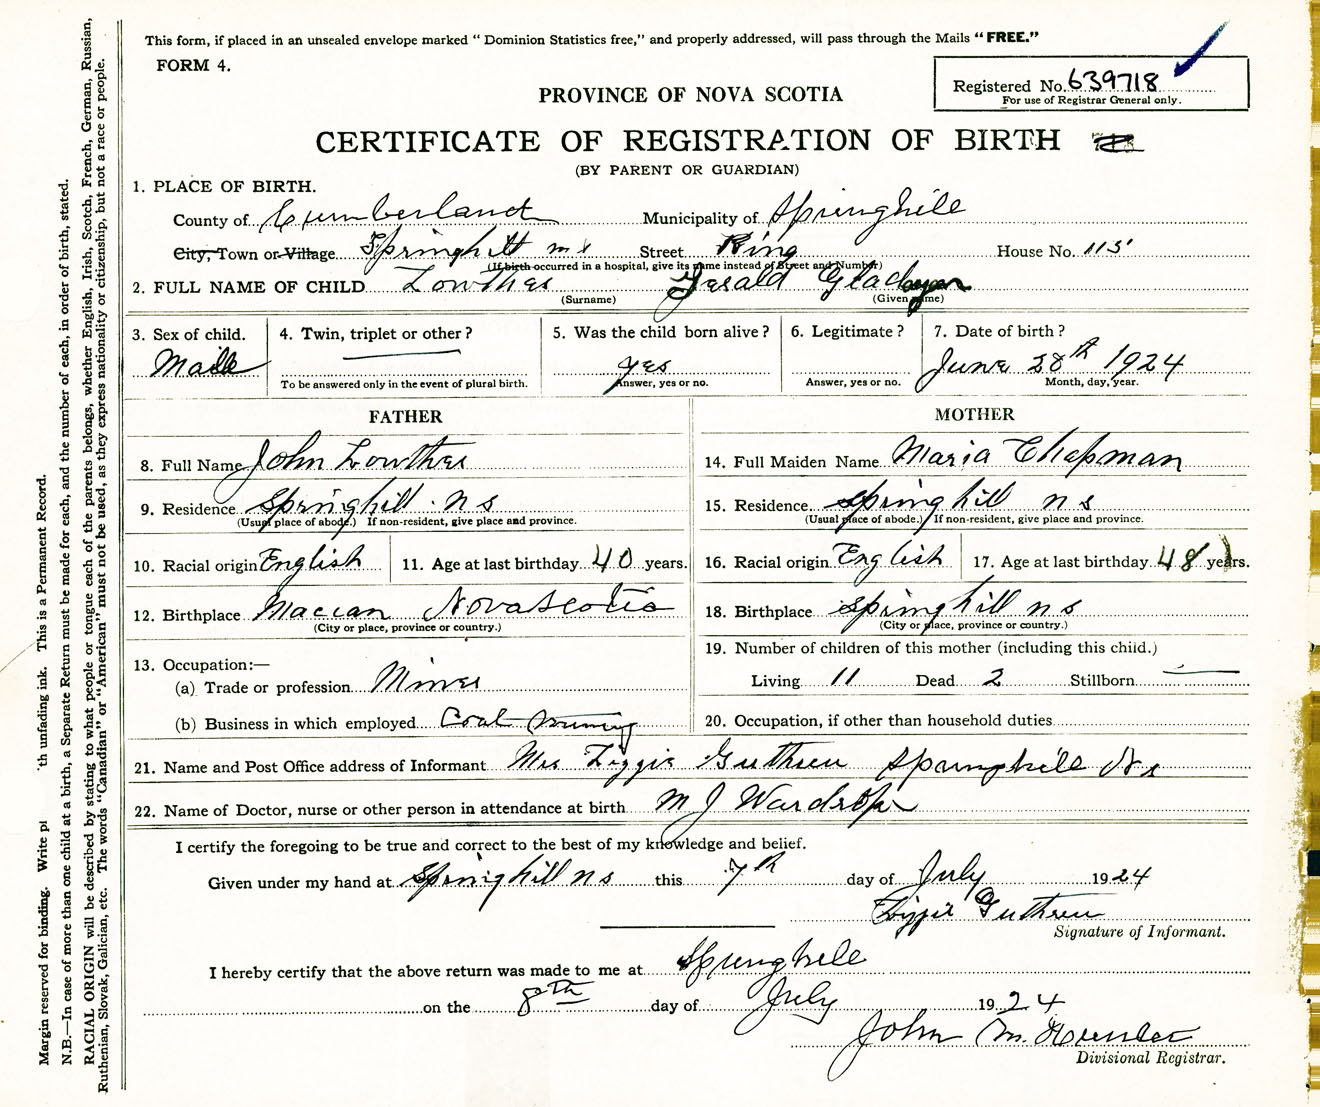 This form, if placed in an unsealed envelope marked "Dominion Statistics free," and properly addressed, will pass through the Mails "FREE."
FORM 4.
Registered No. 639718
For use of Registrar General only.
PROVINCE OF NOVA SCOTIA
CERTIFICATE OF REGISTRATION OF BIRTH
(BY PARENT OR GUARDIAN)
1. PLACE OF BIRTH.
County of Cumberland Municipality of Springhill
City, Town or Village Springhill Street King House No. 115
(If birth occurred in a hospital, give its name instead of Street and Number)
2. FULL NAME OF CHILD Lowther Gerald
(Surname) (Given name)
3. Sex of child. 4. Twin, triplet or other? 5. Was the child born alive? 6. Legitimate? 7. Date of birth?
Male yes June 28th 1924
To be answered only in the event of plural birth. Answer, yes or no. Answer, yes or no. Month, day, year.
FATHER MOTHER
8. Full Name John Lowther 14. Full Maiden Name Maria Chapman
9. Residence Springhill n s 15. Residence Springhill n s
(Usual place of abode.) If non-resident, give place and province. (Usual place of abode.) If non-resident, give place and province.
10. Racial origin English 11. Age at last birthday 40 years. 16. Racial origin English 17. Age at last birthday 48 years.
12. Birthplace Maccan Nova Scotia 18. Birthplace Springhill n s
(City or place, province or country.) (City or place, province or country.)
13. Occupation:— 19. Number of children of this mother (including this child.)
(a) Trade or profession Miner Living 11 Dead 2 Stillborn —
(b) Business in which employed Coal Mining 20. Occupation, if other than household duties
21. Name and Post Office address of Informant Mrs Lizzie Guthreu Springhill N s
22. Name of Doctor, nurse or other person in attendance at birth M J Wardrope
I certify the foregoing to be true and correct to the best of my knowledge and belief.
Given under my hand at Springhill n s this 7th day of July 1924
Lizzie Guthreu
Signature of Informant.
I hereby certify that the above return was made to me at Springhill
on the 8th day of July 1924
John M. Hunter
Divisional Registrar.
Margin reserved for binding. Write pl th unfading ink. This is a Permanent Record.
N.B.—In case of more than one child at a birth, a Separate Return must be made for each, and the number of each, in order of birth, stated.
RACIAL ORIGIN will be described by stating to what people or tongue each of the parents belongs, whether English, Irish, Scotch, French, German, Russian,
Ruthenian, Slovak, Galician, etc. The words "Canadian" or "American" must not be used, as they express nationality or citizenship, but not a race or people.